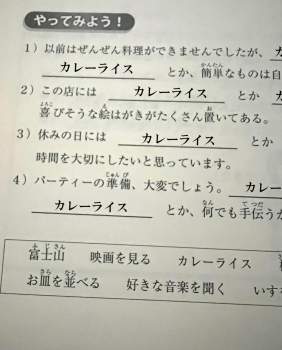 やってみよう！
1）以前はぜんぜん料理ができませんでしたが、カ
カレーライス とか、簡単なものは自
2）この店には カレーライス とか カ
喜びそうな絵はがきがたくさん置いてある。
3）休みの日には カレーライス とか
時間を大切にしたいと思っています。
4）パーティーの準備、大変でしょう。 カレー
カレーライス とか、何でも手伝うか
富士山 映画を見る カレーライス
お皿を並べる 好きな音楽を聞く いす